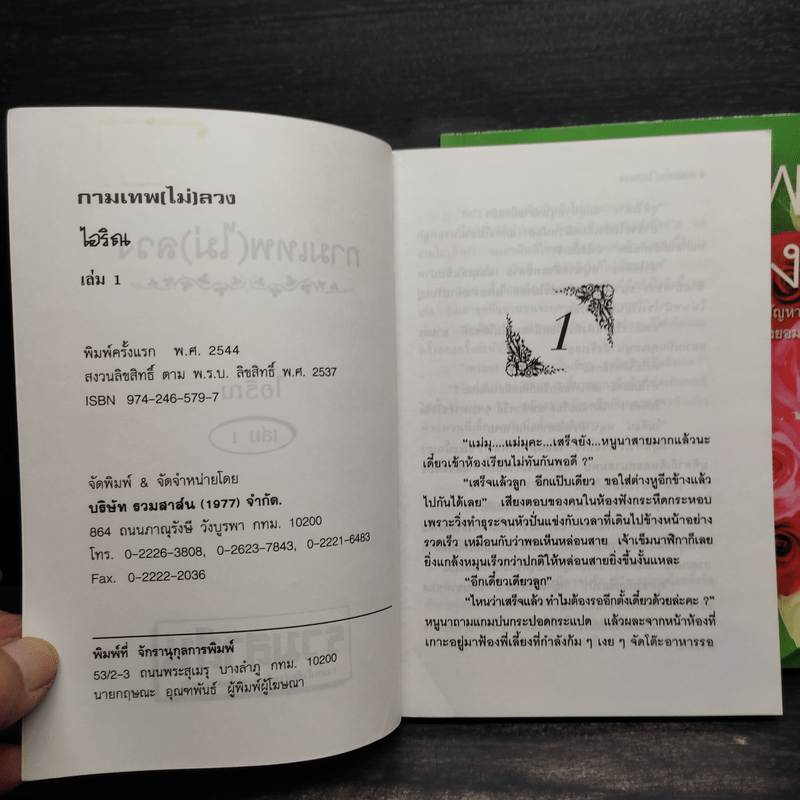 กามเทพ(ไม่)ลวง
ไอริณ
เล่ม 1
พิมพ์ครั้งแรก พ.ศ. 2544
สงวนลิขสิทธิ์ ตาม พ.ร.บ. ลิขสิทธิ์ พ.ศ. 2537
ISBN 974-246-579-7
จัดพิมพ์ & จัดจำหน่ายโดย
บริษัท รวมสาส์น (1977) จำกัด.
864 ถนนภาณุรังษี วังบูรพา กทม. 10200
โทร. 0-2226-3808, 0-2623-7843, 0-2221-6483
Fax. 0-2222-2036
พิมพ์ที่ จักรานุกูลการพิมพ์
53/2-3 ถนนพระสุเมรุ บางลำภู กทม. 10200
นายกฤษณะ อุณฑพันธ์ ผู้พิมพ์ผู้โฆษณา
1
“แม่มุ....แม่มุคะ...เสร็จยัง...หนูนาสายมากแล้วนะ
เดี๋ยวเข้าห้องเรียนไม่ทันกันพอดี ?”
“เสร็จแล้วลูก อีกแป๊บเดียว ขอใส่ต่างหูอีกข้างแล้ว
ไปกันได้เลย” เสียงตอบของคนในห้องฟังกระหืดกระหอบ
เพราะวิ่งทำธุระจนหัวปั่นแข่งกับเวลาที่เดินไปข้างหน้าอย่าง
รวดเร็ว เหมือนกับว่าพอเห็นหล่อนสาย เจ้าเข็มนาฬิกาก็เลย
ยิ่งแกล้งหมุนเร็วกว่าปกติให้หล่อนสายยิ่งขึ้นงั้นแหละ
“อีกเดี๋ยวเดียวลูก”
“ไหนว่าเสร็จแล้ว ทำไมต้องรออีกตั้งเดี๋ยวด้วยล่ะคะ ?”
หนูนาถามแกมบ่นกระปอดกระแปด แล้วผละจากหน้าห้องที่
เกาะอยู่มาฟ้องพี่เลี้ยงที่กำลังก้ม ๆ เงย ๆ จัดโต๊ะอาหารรอ